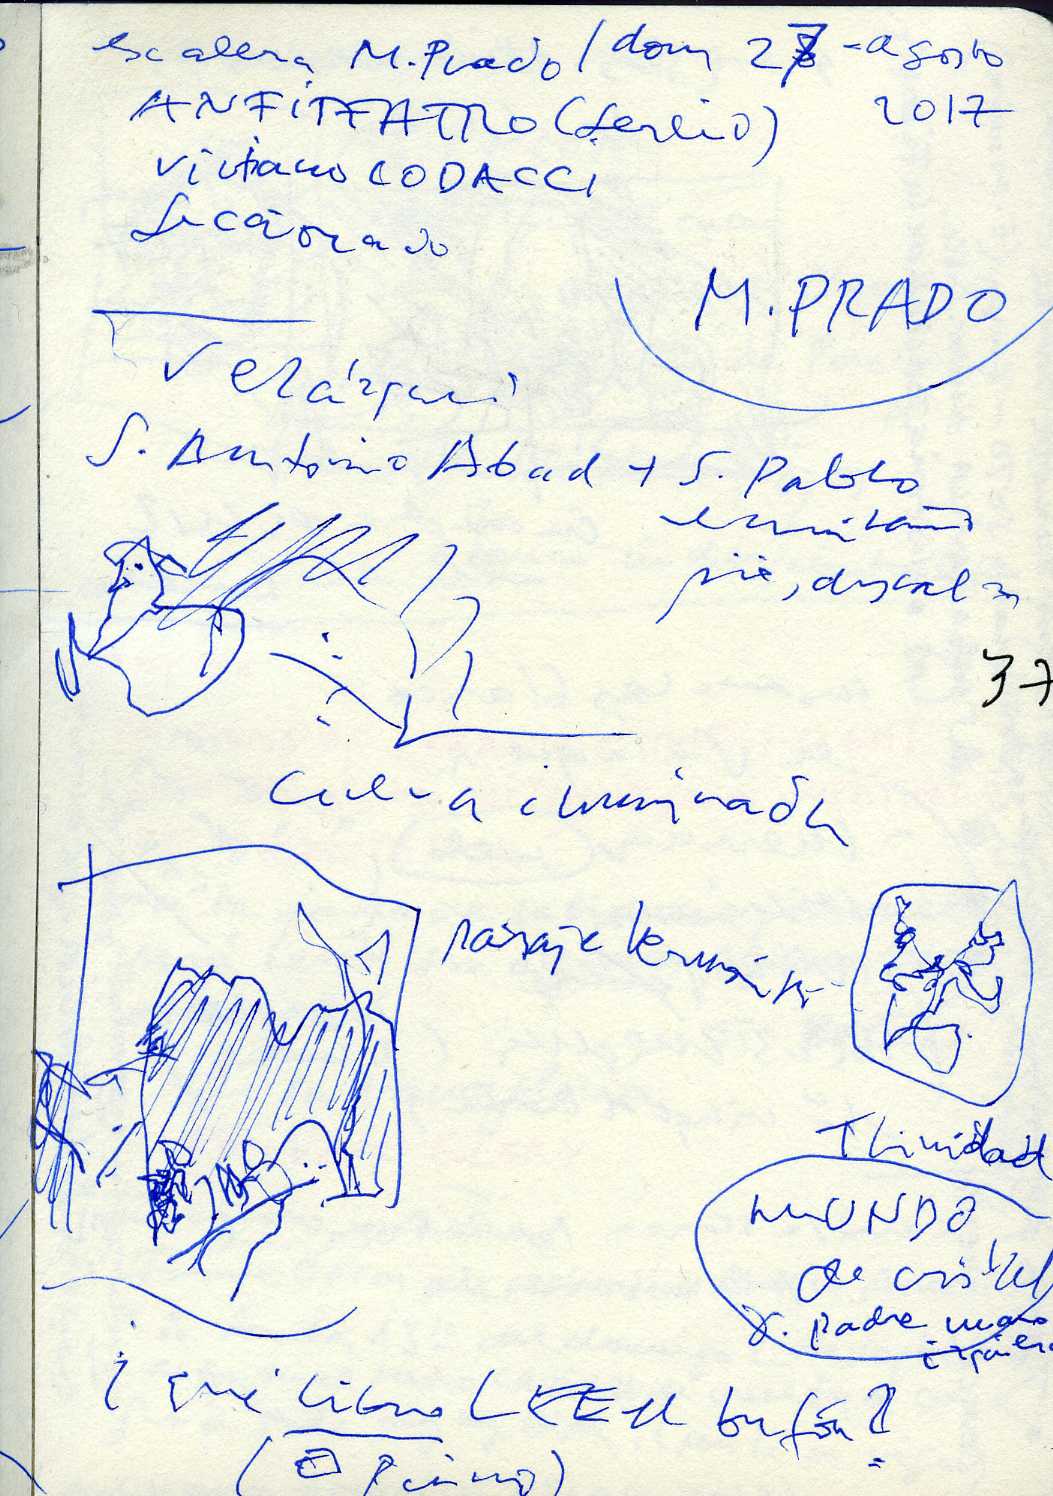 escalera M. Prado / dom 27 - agosto
2017
ANFITEATRO
Viviano CODACCI
M. PRADO
Velázquez
S. Antonio Abad + S. Pablo
ermitaño
pie, descalzo
37
Cueva iluminada
paisaje
Trinidad
MUNDO
de cristal
D. Padre mano
izquierda
¿qué libro LEE el bufón?